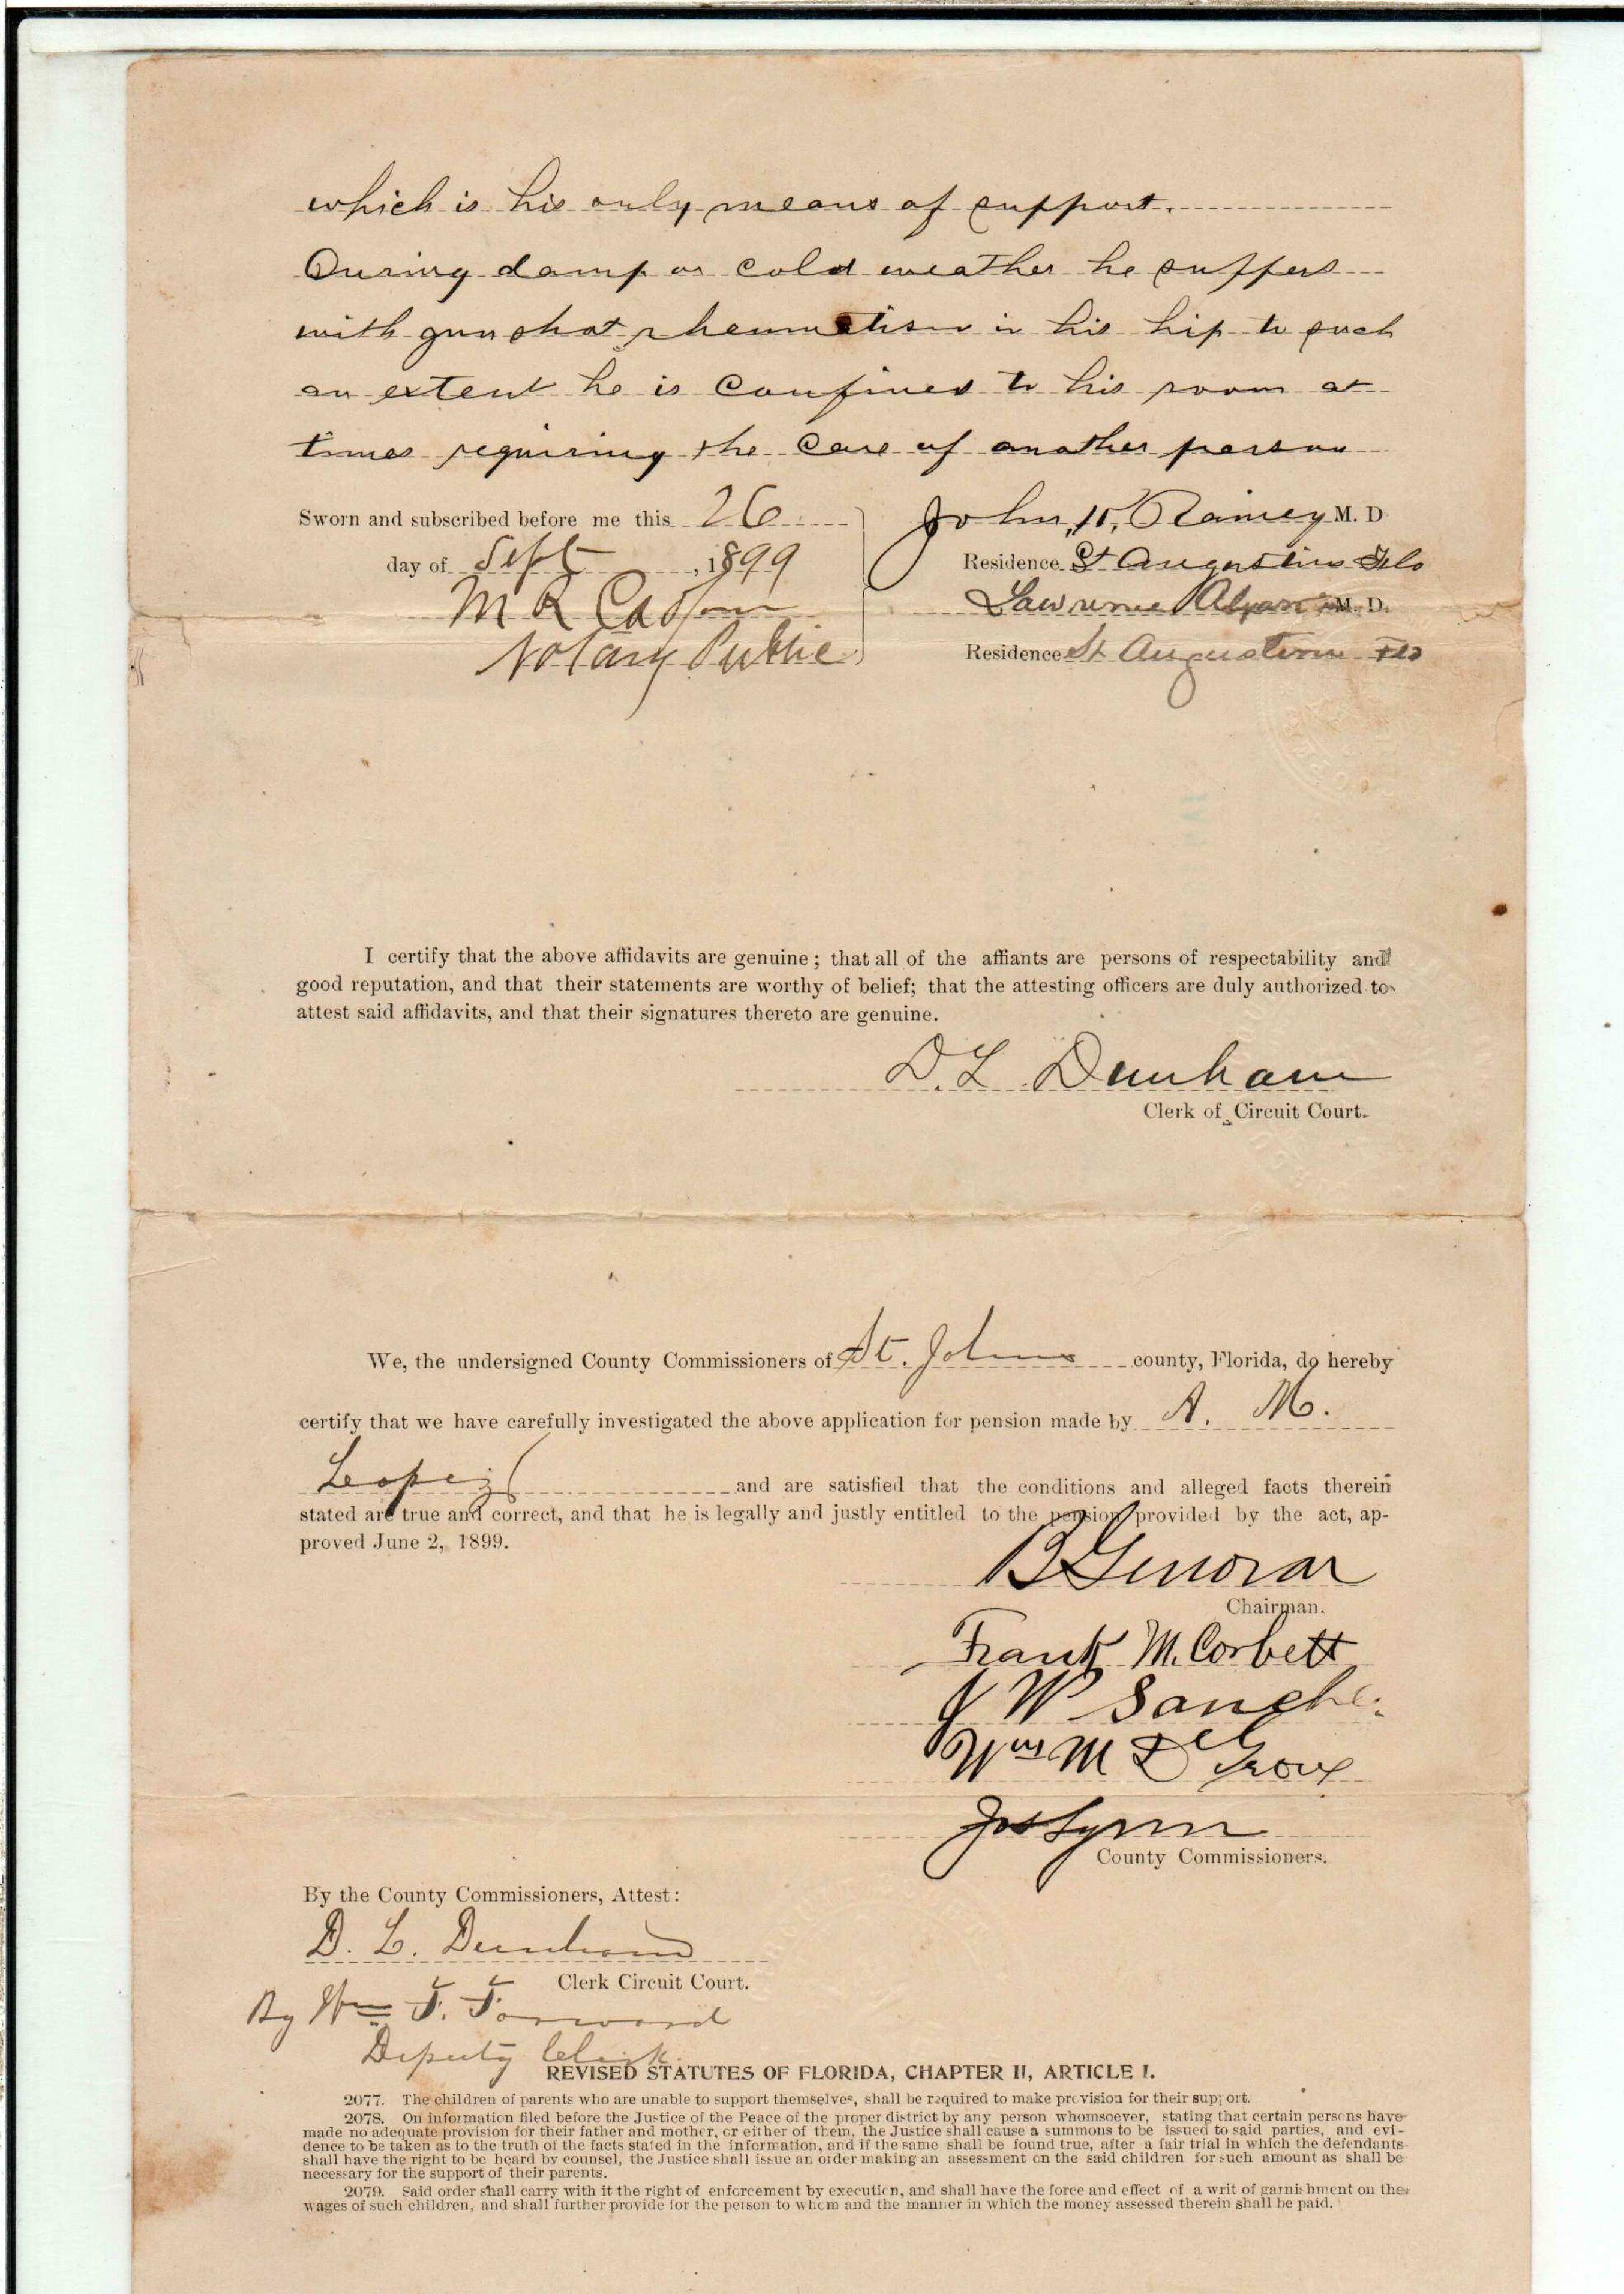 which is his only means of support.
During damp or cold weather he suffers
with gun shot rheumatism in his hip to such
an extent he is confined to his room at
times requiring the care of another person
Sworn and subscribed before me this 26
day of Sept, 1899
M R
Notary Public
John H. Rainey M. D
Residence St Augustine Flo
Lawrence M. D.
Residence St Augustine Flo
I certify that the above affidavits are genuine; that all of the affiants are persons of respectability and
good reputation, and that their statements are worthy of belief; that the attesting officers are duly authorized to
attest said affidavits, and that their signatures thereto are genuine.
D. L. Dunham
Clerk of Circuit Court.
We, the undersigned County Commissioners of St. Johns county, Florida, do hereby
certify that we have carefully investigated the above application for pension made by A. M.
Leopez and are satisfied that the conditions and alleged facts therein
stated are true and correct, and that he is legally and justly entitled to the pension provided by the act, ap-
proved June 2, 1899.
B Genovar
Chairman.
Frank M. Corbett
W Sanche
Wm M DeGrove
Jos Lynn
County Commissioners.
By the County Commissioners, Attest:
D. L. Dunham
Clerk Circuit Court.
By Wm F. Forward
Deputy Clerk
REVISED STATUTES OF FLORIDA, CHAPTER II, ARTICLE I.
2077. The children of parents who are unable to support themselves, shall be required to make provision for their support.
2078. On information filed before the Justice of the Peace of the proper district by any person whomsoever, stating that certain persons have
made no adequate provision for their father and mother, or either of them, the Justice shall cause a summons to be issued to said parties, and evi-
dence to be taken as to the truth of the facts stated in the information, and if the same shall be found true, after a fair trial in which the defendants
shall have the right to be heard by counsel, the Justice shall issue an order making an assessment on the said children for such amount as shall be
necessary for the support of their parents.
2079. Said order shall carry with it the right of enforcement by execution, and shall have the force and effect of a writ of garnishment on the
wages of such children, and shall further provide for the person to whom and the manner in which the money assessed therein shall be paid.